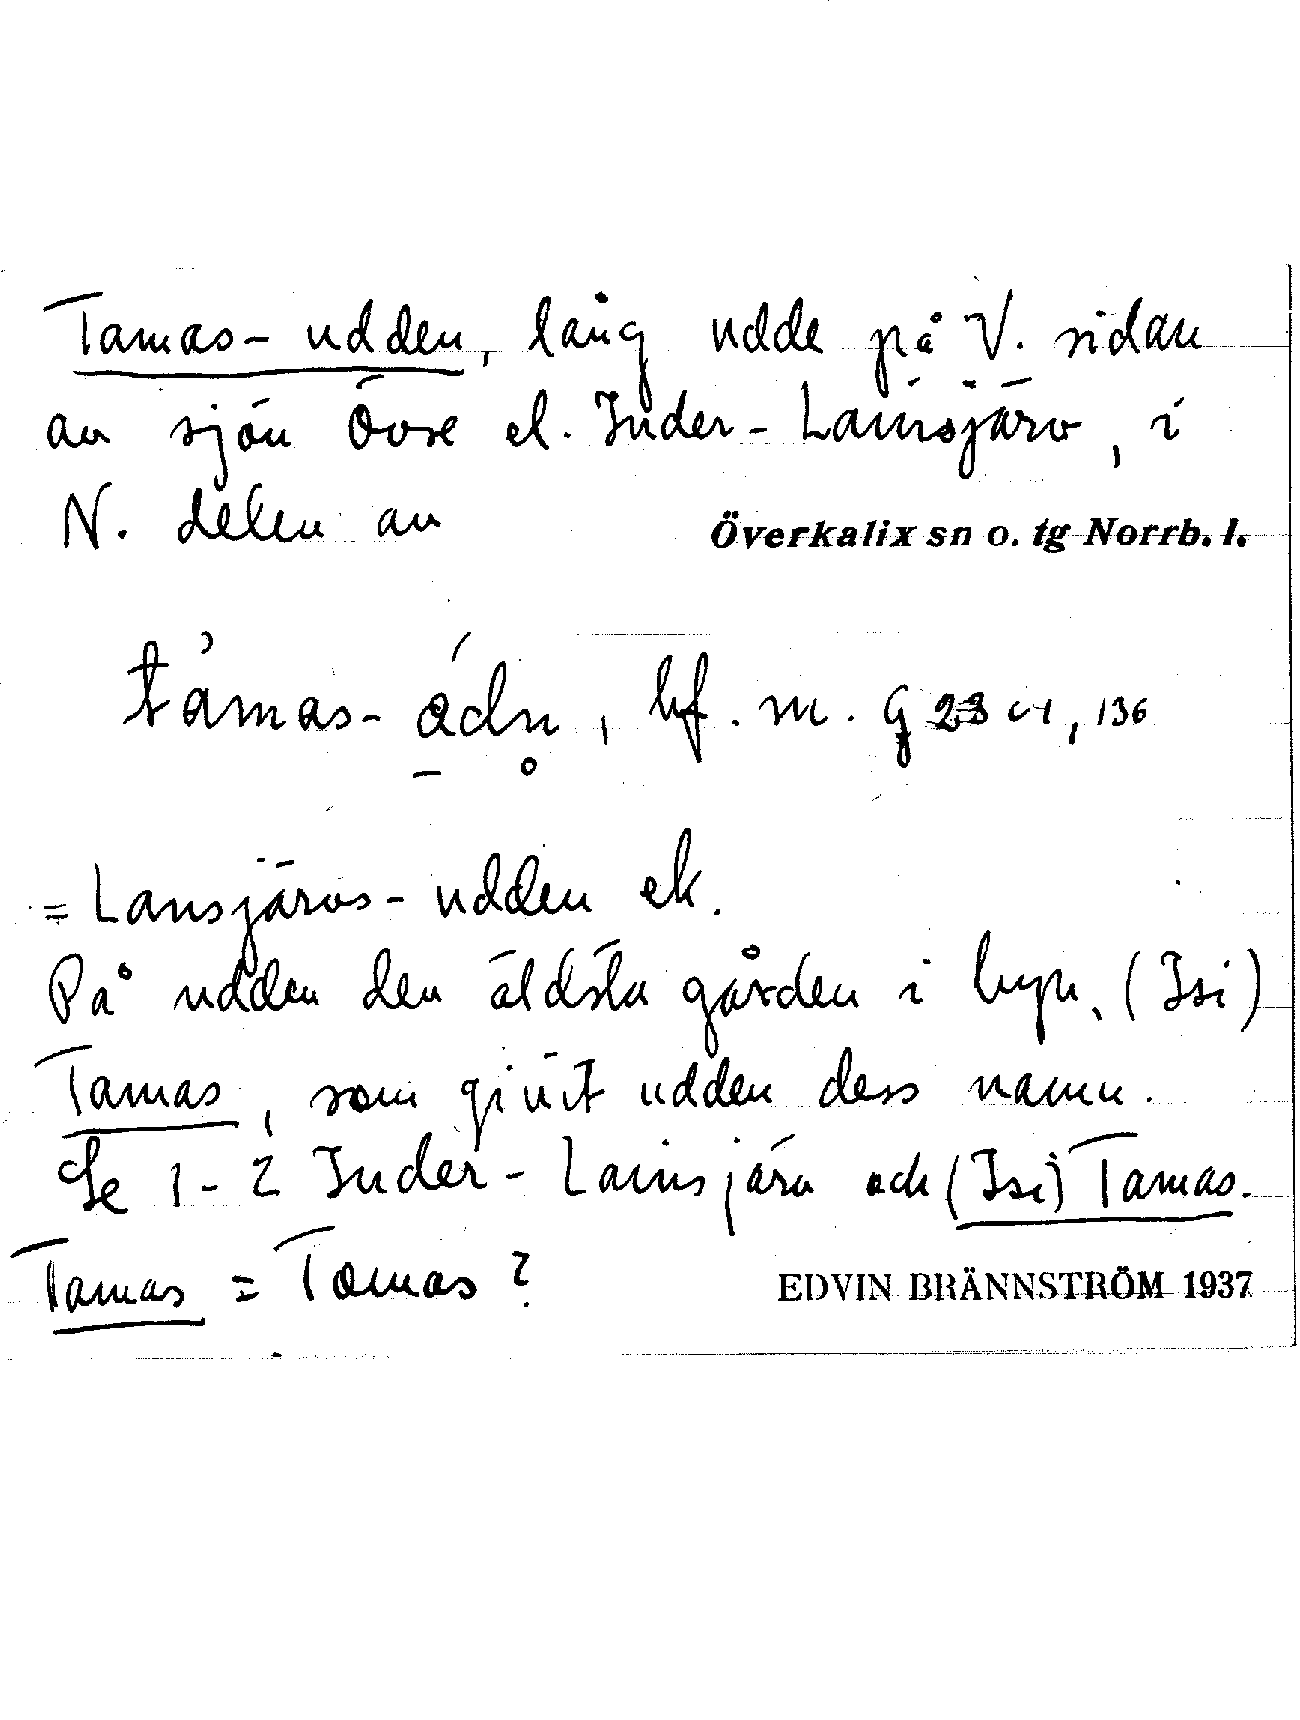 Tamas-udden, lång udde på V. sidan
av sjön Övre el. Inder-Lainsjärv, i
N. delen av Överkalix sn o. tg Norrb. l.
bf. m. 136
= Lansjärvs-udden ek.
På udden den äldsta gården i byn, (Isi)
Tamas, som givit udden dess namn.
Se 1-2 Inder-Lainsjärv och (Isi) Tamas.
Tamas = Tomas?
EDVIN BRÄNNSTRÖM 1937